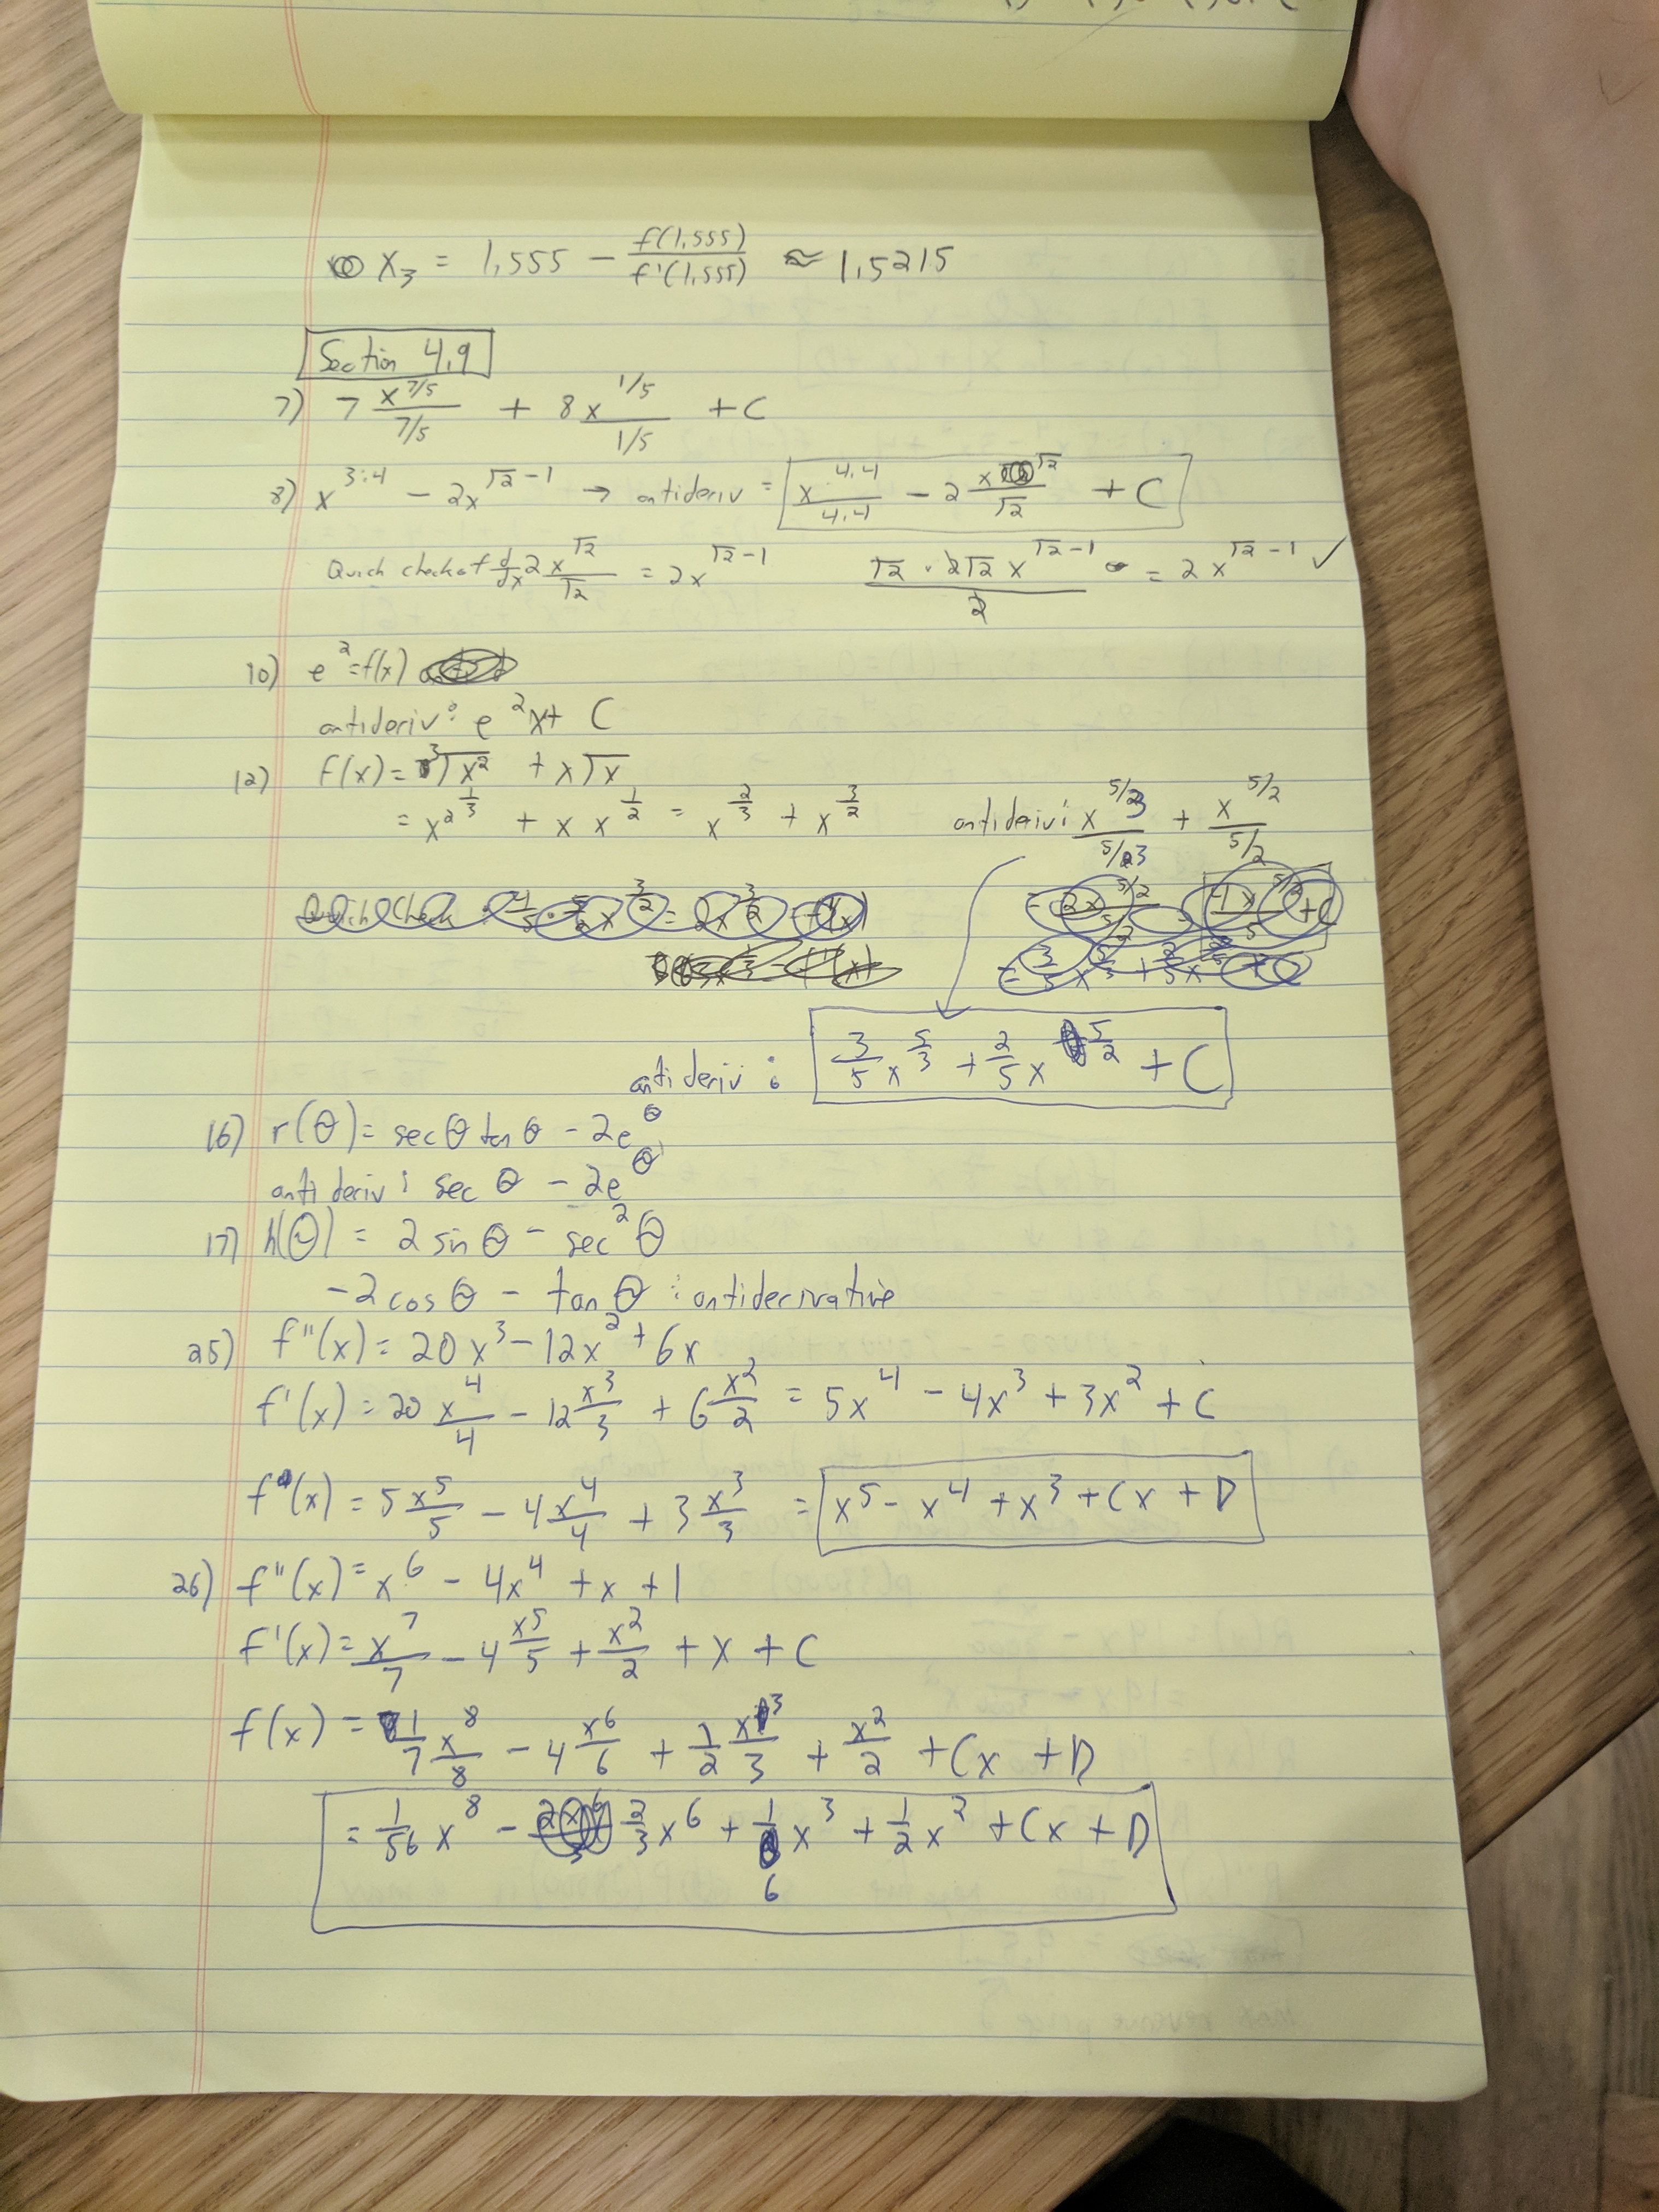 x₃ = 1.555 − f(1.555)/f'(1.555) ≈ 1.5215
Section 4.9
7) 7 x^(7/5)/(7/5) + 8 x^(1/5)/(1/5) + C
8) x^3.4 − 2x^(√2−1) → antideriv = x^4.4/4.4 − 2 x^√2/√2 + C
Quick check of d/dx 2 x^√2/√2 = 2x^(√2−1) (√2 · 2√2 x^(√2−1))/2 = 2x^(√2−1) ✓
10) e² = f(x)
antideriv: e²x + C
12) f(x) = ³√x² + x√x
= x^2^(1/3) + x x^(1/2) = x^(2/3) + x^(3/2) antideriv: x^(5/3)/(5/3) + x^(5/2)/(5/2)
antideriv: 3/5 x^(5/3) + 2/5 x^(5/2) + C
16) r(θ) = secθ tanθ − 2e^θ
antideriv: sec θ − 2e^θ
17) h(θ) = 2 sinθ − sec²θ
−2cosθ − tanθ : antiderivative
25) f''(x) = 20x³ − 12x² + 6x
f'(x) = 20 x⁴/4 − 12 x³/3 + 6 x²/2 = 5x⁴ − 4x³ + 3x² + C
f(x) = 5 x⁵/5 − 4 x⁴/4 + 3 x³/3 = x⁵ − x⁴ + x³ + Cx + D
26) f''(x) = x⁶ − 4x⁴ + x + 1
f'(x) = x⁷/7 − 4 x⁵/5 + x²/2 + x + C
f(x) = 1/7 x⁸/8 − 4 x⁶/6 + 1/2 x³/3 + x²/2 + Cx + D
= 1/56 x⁸ − 2/3 x⁶ + 1/6 x³ + 1/2 x² + Cx + D